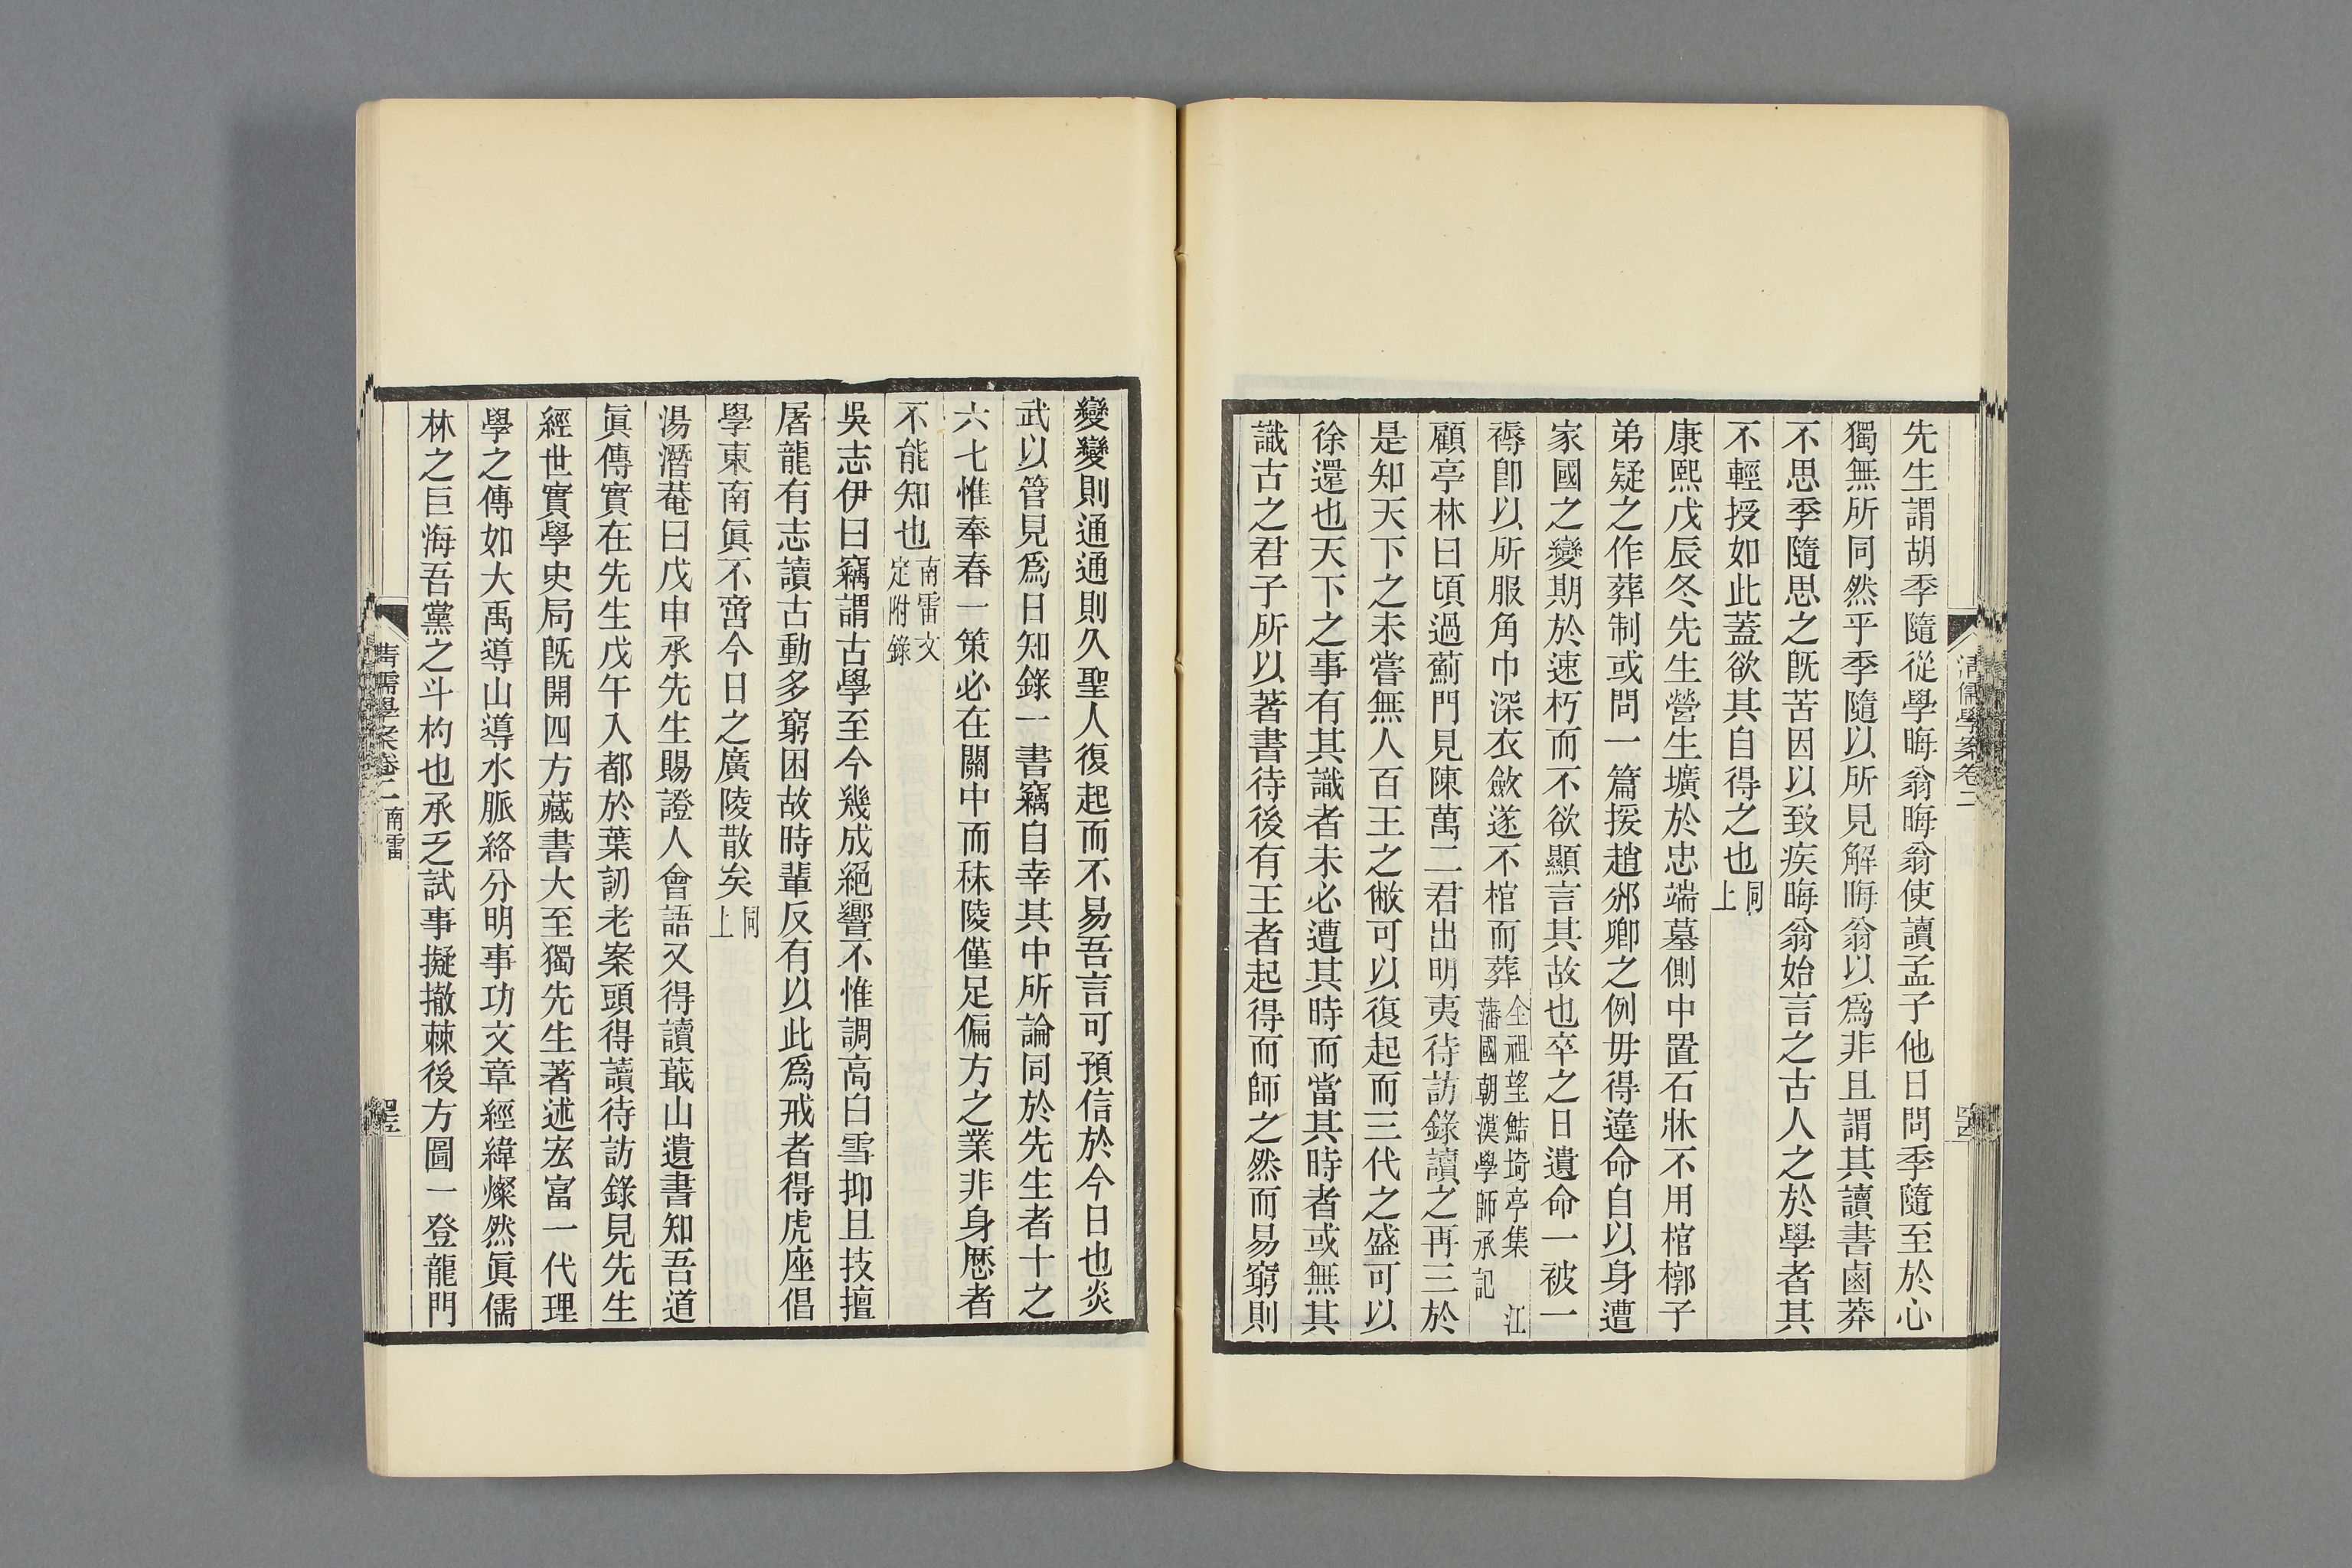 清儒學案卷二
先生謂胡季隨從學晦翁晦翁使讀孟子他日問季隨至於心
獨無所同然乎季隨以所見解晦翁以爲非且謂其讀書鹵莽
不思季隨思之旣苦因以致疾晦翁始言之古人之於學者其
不輕授如此蓋欲其自得之也同上
康熙戊辰冬先生營生壙於忠端墓側中置石牀不用棺槨子
弟疑之作葬制或問一篇援趙邠卿之例毋得違命自以身遭
家國之變期於速朽而不欲顯言其故也卒之日遺命一被一
褥卽以所服角巾深衣斂遂不棺而葬全祖望鮚埼亭集 江藩國朝漢學師承記
顧亭林曰頃過薊門見陳萬二君出明夷待訪錄讀之再三於
是知天下之未嘗無人百王之敝可以復起而三代之盛可以
徐還也天下之事有其識者未必遭其時而當其時者或無其
識古之君子所以著書待後有王者起得而師之然而易窮則
變變則通通則久聖人復起而不易吾言可預信於今日也炎
武以管見爲日知錄一書竊自幸其中所論同於先生者十之
六七惟奉春一策必在關中而秣陵僅足偏方之業非身歷者
不能知也南雷文定附錄
吳志伊曰竊謂古學至今幾成絕響不惟調高白雪抑且技擅
屠龍有志讀古動多窮困故時輩反有以此爲戒者得虎座倡
學東南眞不啻今日之廣陵散矣同上
湯潛菴曰戊申承先生賜證人會語又得讀蕺山遺書知吾道
眞傳實在先生戊午入都於葉訒老案頭得讀待訪錄見先生
經世實學史局旣開四方藏書大至獨先生著述宏富一代理
學之傳如大禹導山導水脈絡分明事功文章經緯燦然眞儒
林之巨海吾黨之斗杓也承乏試事擬撤棘後方圖一登龍門
清儒學案卷二 南雷